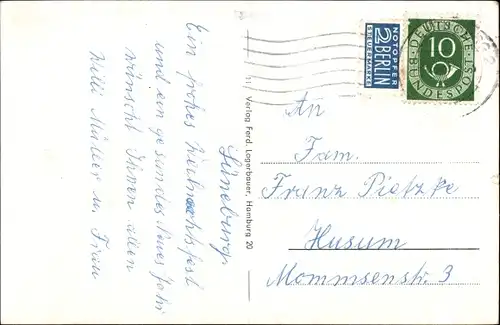 Lüneburg.
Ein frohes Weihnachtsfest
und ein gesundes Neues Jahr
wünscht Ihnen allen
Willi Müller u. Frau
Verlag Ferd. Lagerbauer, Hamburg 20
NOTOPFER
2 BERLIN
STEUERMARKE
DEUTSCHE BUNDESPOST
10
An
Fam.
Franz Pietzke
Husum
Mommsenstr. 3